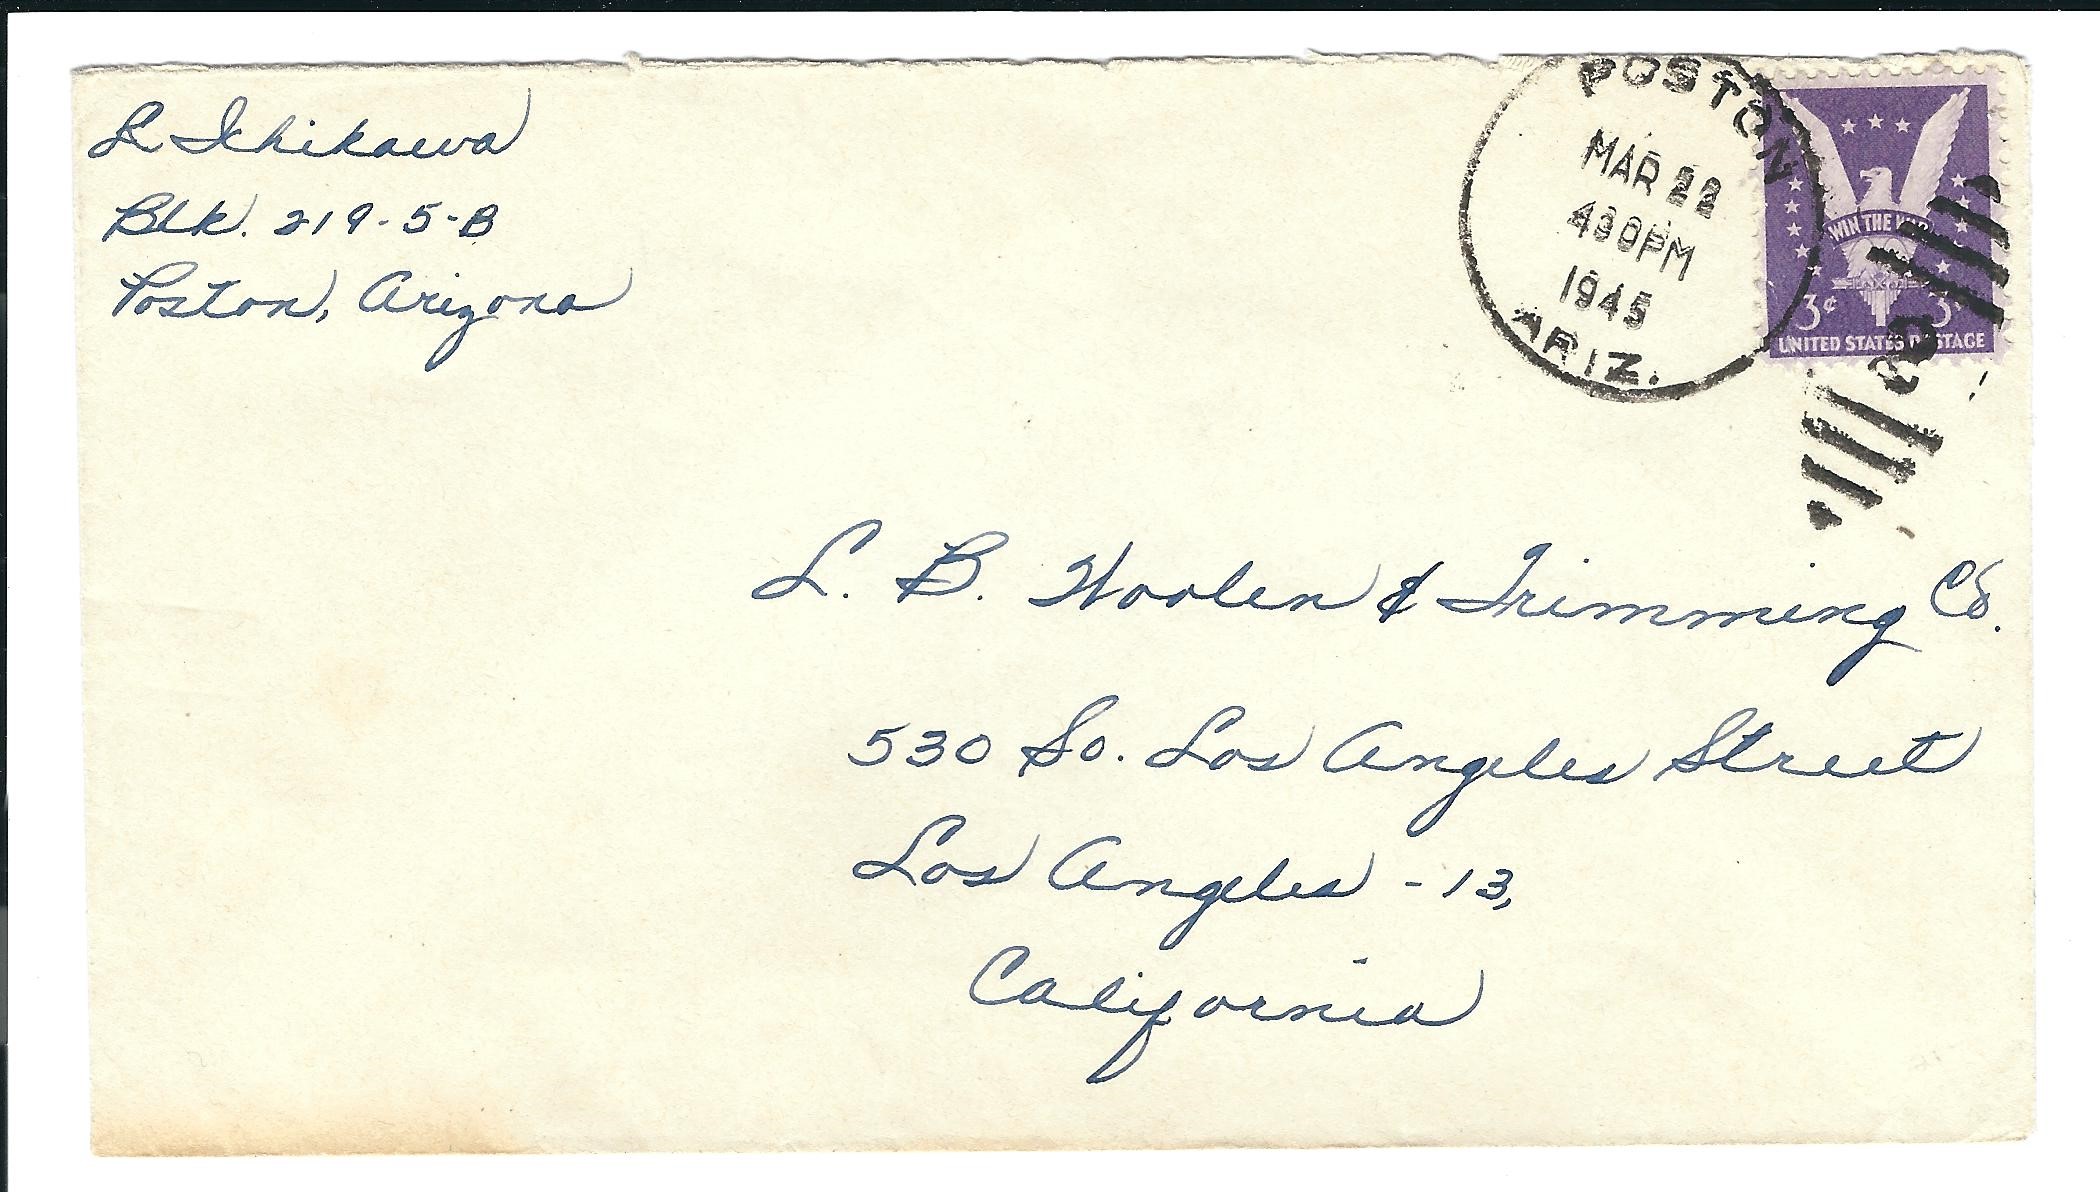 L Ichikawa
Blk. 219-5-B
Poston, Arizona
POSTON
MAR 22
430PM
1945
ARIZ.
WIN THE WAR
3¢ 3¢
UNITED STATES POSTAGE
L. B. Woolen & Trimming Co.
530 So. Los Angeles Street
Los Angeles - 13,
California